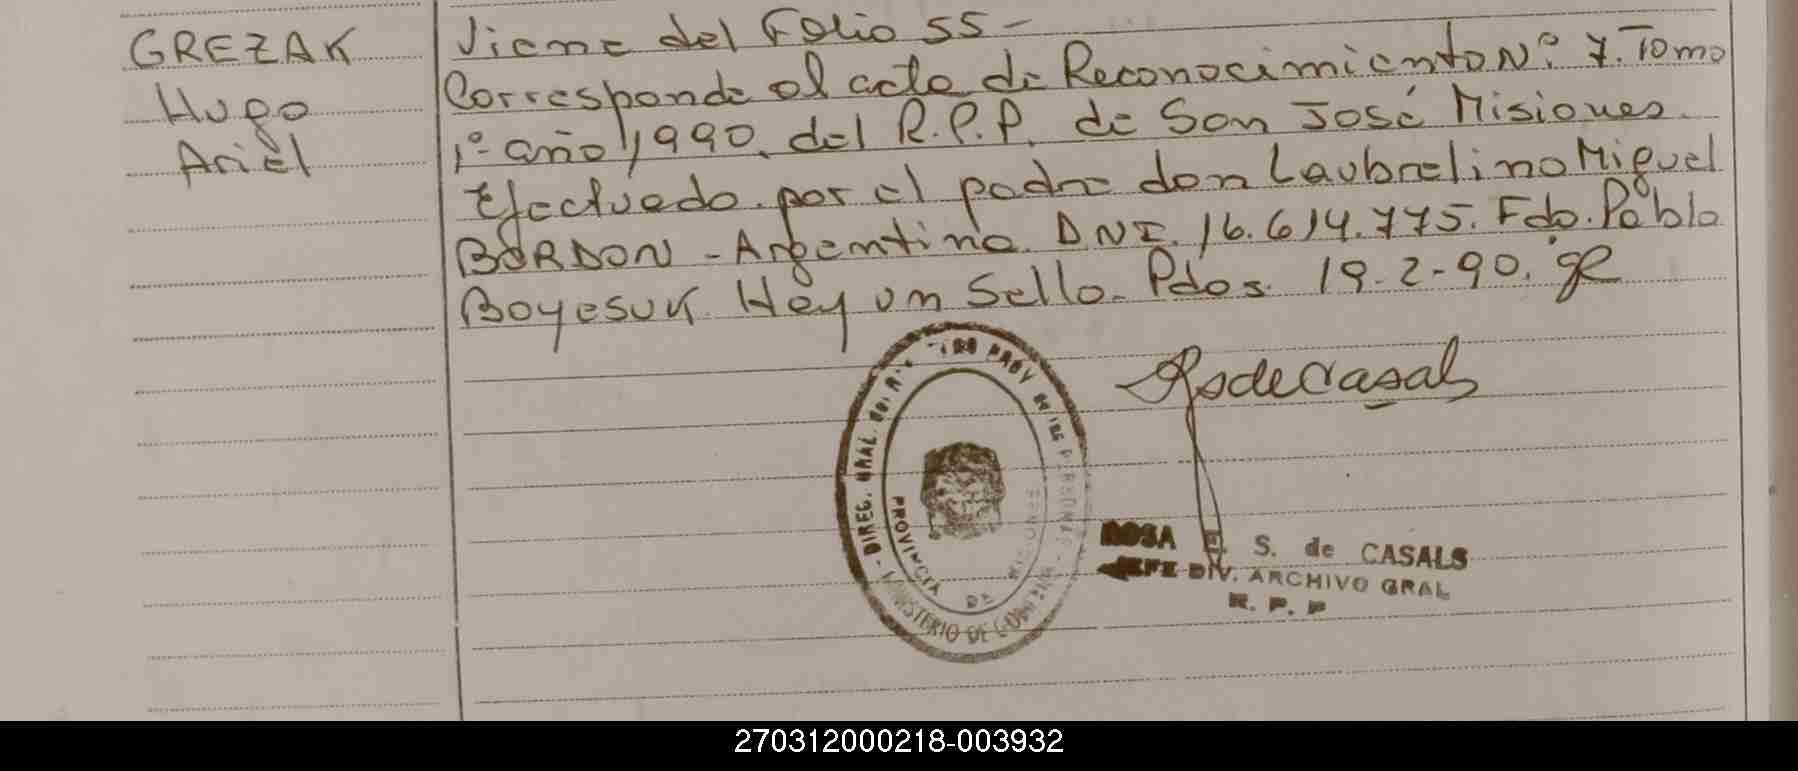 GREZAK
Hugo
Ariel
Viene del Folio 55-
Corresponde al acta de Reconocimiento Nº 7. Tomo
1º año 1990. del R.P.P. de San José Misiones.
Efectuado. por el padre don Laubrelino Miguel
BORDON - Argentino. DNI. 16.614.775. Fdo. Pablo
Boyesuk. Hay un Sello. Pdos. 19-2-90.
RSdeCasals
DIREC. GRAL. PROV
MINISTERIO DE
PROVINCIA DE MISIONES
ROSA E. S. de CASALS
JEFE DIV. ARCHIVO GRAL
R. P. P
270312000218-003932